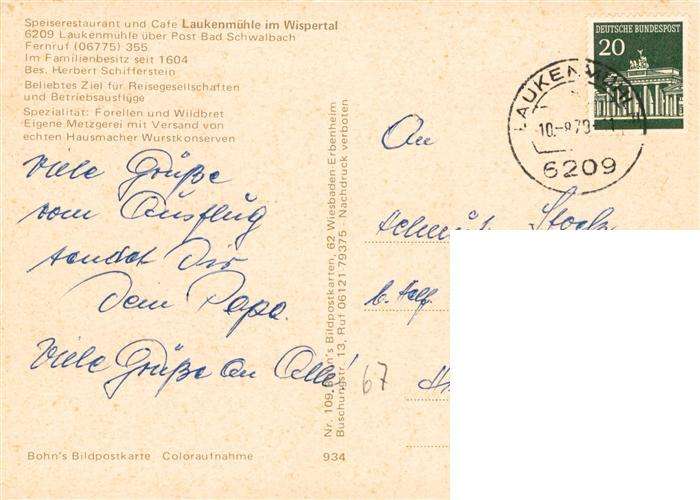 Speiserestaurant und Cafe Laukenmühle im Wispertal
6209 Laukenmühle über Post Bad Schwalbach
Fernruf (06775) 355
Im Familienbesitz seit 1604
Bes. Herbert Schifferstein
Beliebtes Ziel für Reisegesellschaften
und Betriebsausflüge
Spezialität: Forellen und Wildbret
Eigene Metzgerei mit Versand von
echten Hausmacher Wurstkonserven
Viele Grüße
vom Ausflug
sendet Dir
Dein Papa.
Viele Grüße an Alle!
Bohn's Bildpostkarte Coloraufnahme 934
Nr. 109 Bohn's Bildpostkarten, 62 Wiesbaden-Erbenheim
Buschungstr. 13, Ruf 06121 79375 Nachdruck verboten
DEUTSCHE BUNDESPOST
20
LAUKENMÜHLE
6209
An
67